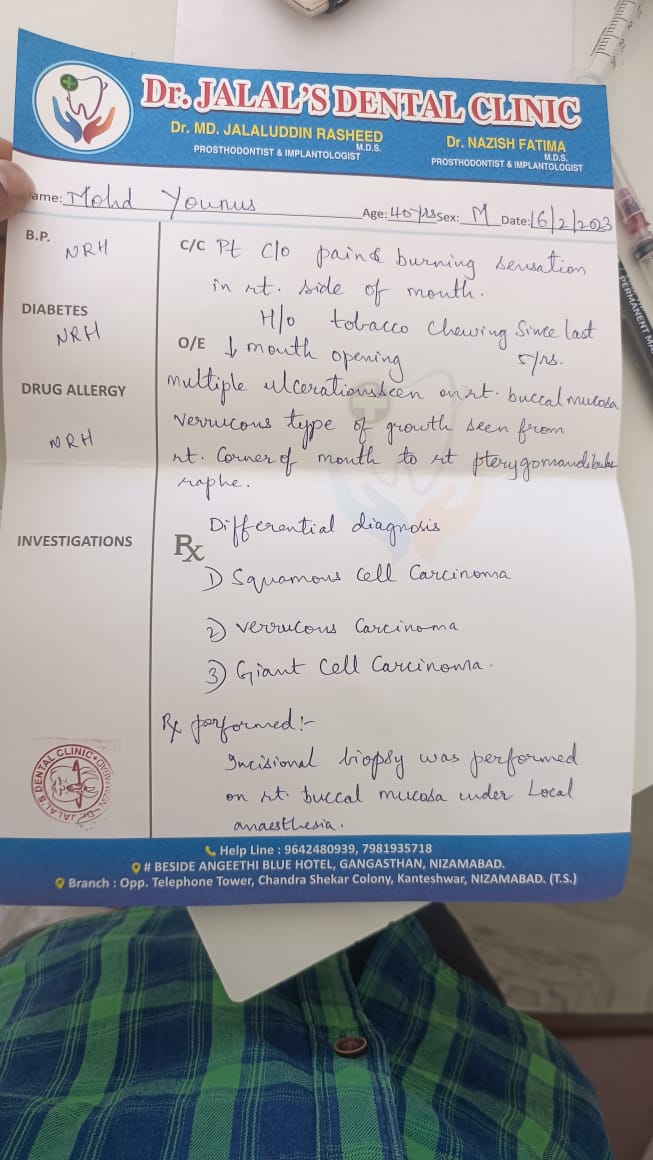 Dr. JALAL'S DENTAL CLINIC
Dr. MD. JALALUDDIN RASHEED
M.D.S.
PROSTHODONTIST & IMPLANTOLOGIST
Dr. NAZISH FATIMA
M.D.S.
PROSTHODONTIST & IMPLANTOLOGIST
ame: Mohd Younus Age: 40yrs Sex: M Date: 16/2/2023
B.P.
NRH
DIABETES
NRH
DRUG ALLERGY
NRH
INVESTIGATIONS
C/C Pt c/o pain & burning sensation
in rt. side of mouth.
H/o tobacco chewing since last
5yrs.
O/E ↓ mouth opening
multiple ulcerations seen on rt. buccal mucosa
verrucous type of growth seen from
rt. corner of mouth to rt pterygomandibular
raphe.
Differential diagnosis
Rx
1) Squamous cell carcinoma
2) verrucous carcinoma
3) Giant cell carcinoma.
Rx performed:-
Incisional biopsy was performed
on rt. buccal mucosa under local
anaesthesia.
Help Line : 9642480939, 7981935718
# BESIDE ANGEETHI BLUE HOTEL, GANGASTHAN, NIZAMABAD.
Branch : Opp. Telephone Tower, Chandra Shekar Colony, Kanteshwar, NIZAMABAD. (T.S.)
DENTAL CLINIC
PERMANENT MA